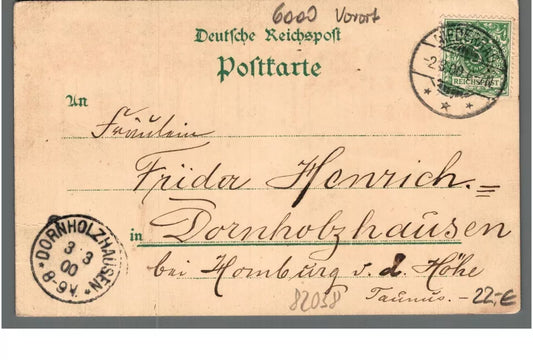 6000 Vorort
Deutsche Reichspost
Postkarte
REICHSPOST
An
Fräulein
Frider Henrich.=
in Dornholzhausen
bei Homburg v. d. Höhe
Taunus.
22,-€
82038
DORNHOLZHAUSEN
3 3
00
8-9V.